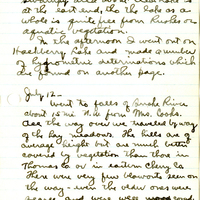 swampy area about Red rock is
at the east end, tho the lake as a
whole is quite free from Rushes or
aquatic vegetation.
In the afternoon I went out on
Hackberry Lake and made a number
of hygrometric determinations which
are found on another page.
July 12 -
Went to falls of Snake River
about 15 mi N.W. from Mrs. Cooks.
All the way over we traveled by way
of the hay meadows. The hills are of
average height but are much better
covered by vegetation than those in
Thomas Co or in eastern Cherry Co.
There were very few blowouts seen on
the way - even the older ones were